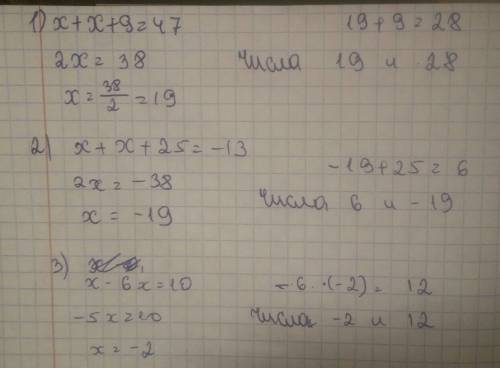 1) x+x+9=47
19+9=28
2x=38
Числа 19 и 28
x=38/2=19
2) x+x+25=-13
-19+25=6
2x=-38
Числа 6 и -19
x=-19
3)
x-6x=10
-6·(-2)=12
-5x=10
Числа -2 и 12
x=-2